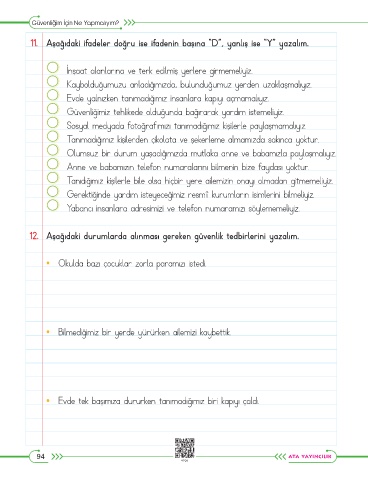 Güvenliğim İçin Ne Yapmalıyım?
11. Aşağıdaki ifadeler doğru ise ifadenin başına "D", yanlış ise "Y" yazalım.
İnşaat alanlarına ve terk edilmiş yerlere girmemeliyiz.
Kaybolduğumuzu anladığımızda, bulunduğumuz yerden uzaklaşmalıyız.
Evde yalnızken tanımadığımız insanlara kapıyı açmamalıyız.
Güvenliğimiz tehlikede olduğunda bağırarak yardım istemeliyiz.
Sosyal medyada fotoğrafımızı tanımadığımız kişilerle paylaşmamalıyız.
Tanımadığımız kişilerden çikolata ve şekerleme almamızda sakınca yoktur.
Olumsuz bir durum yaşadığımızda mutlaka anne ve babamızla paylaşmalıyız.
Anne ve babamızın telefon numaralarını bilmenin bize faydası yoktur.
Tanıdığımız kişilerle bile olsa hiçbir yere ailemizin onayı olmadan gitmemeliyiz.
Gerektiğinde yardım isteyeceğimiz resmî kurumların isimlerini bilmeliyiz.
Yabancı insanlara adresimizi ve telefon numaramızı söylememeliyiz.
12. Aşağıdaki durumlarda alınması gereken güvenlik tedbirlerini yazalım.
• Okulda bazı çocuklar zorla paramızı istedi.
• Bilmediğimiz bir yerde yürürken ailemizi kaybettik.
• Evde tek başımıza dururken tanımadığımız biri kapıyı çaldı.
94
ATA YAYINCILIK